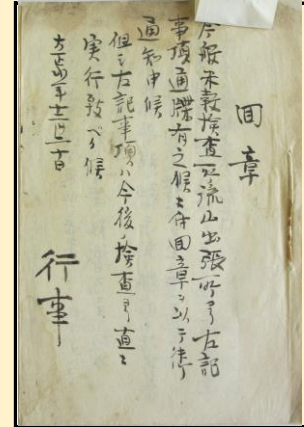 回章
今般米穀検査区流山出張所ヨリ左記
事項通牒有之候ニ付回章ヲ以テ御
通知申候
但シ左記事項ハ今後ノ検査ヨリ直ニ
実行致ベク候
大正四年十二月二十日
行事